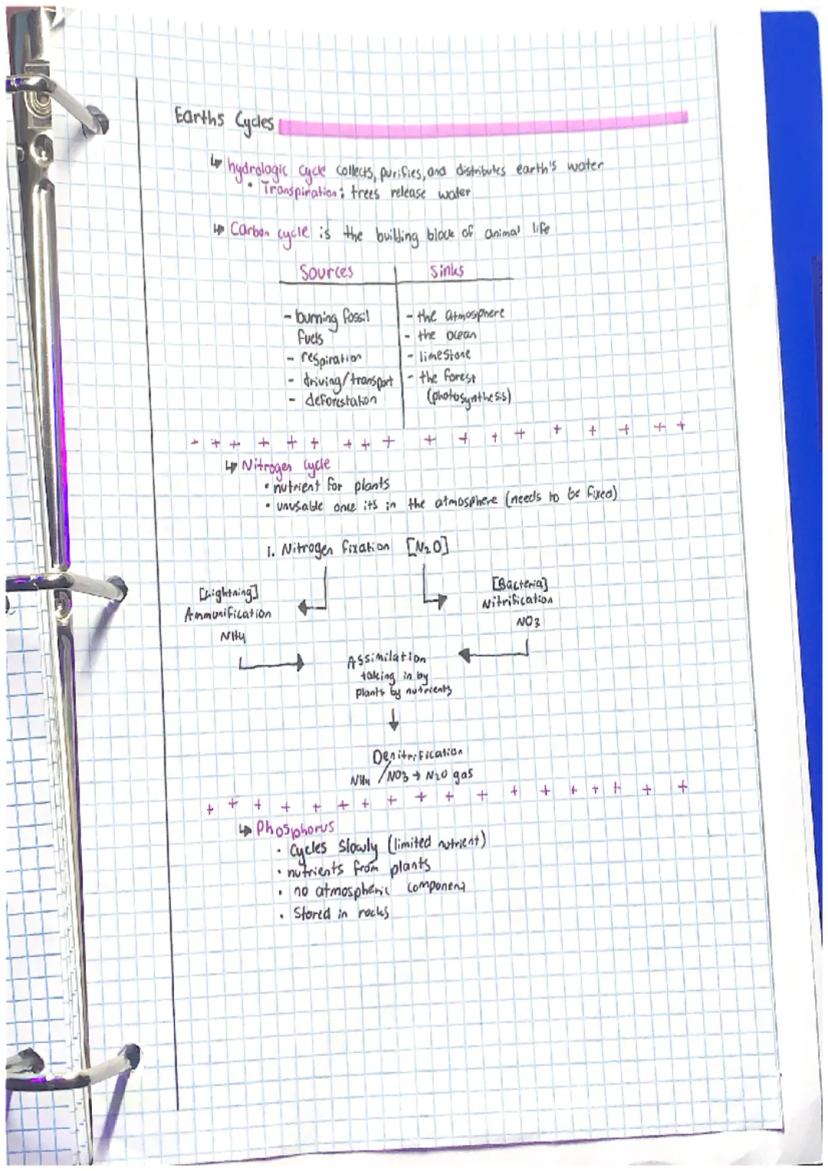 Earths Cycles
↳ hydrologic cycle collects, purifies, and distributes earth's water
• Transpiration: trees release water
↳ Carbon cycle is the building block of animal life
Sources
- burning fossil
fuels
- respiration
- driving/transport
- deforestation
Sinks
- the atmosphere
- the ocean
- limestone
- the forest
(photosynthesis)
+ + + + + + + + + + + + + + + + + +
↳ Nitrogen cycle
• nutrient for plants
• unusable once its in the atmosphere (needs to be fixed)
1. Nitrogen fixation [N2O]
[Lightning]
Ammunification
NH4
[Bacteria]
Nitrification
NO3
Assimilation
taking in by
plants by nutrients
Denitrification
NH4 /NO3 → N2O gas
+ + + + + + + + + + + + + + + + + +
↳ Phosphorus
• Cycles slowly (limited nutrient)
• nutrients from plants
• no atmospheric component
• Stored in rocks